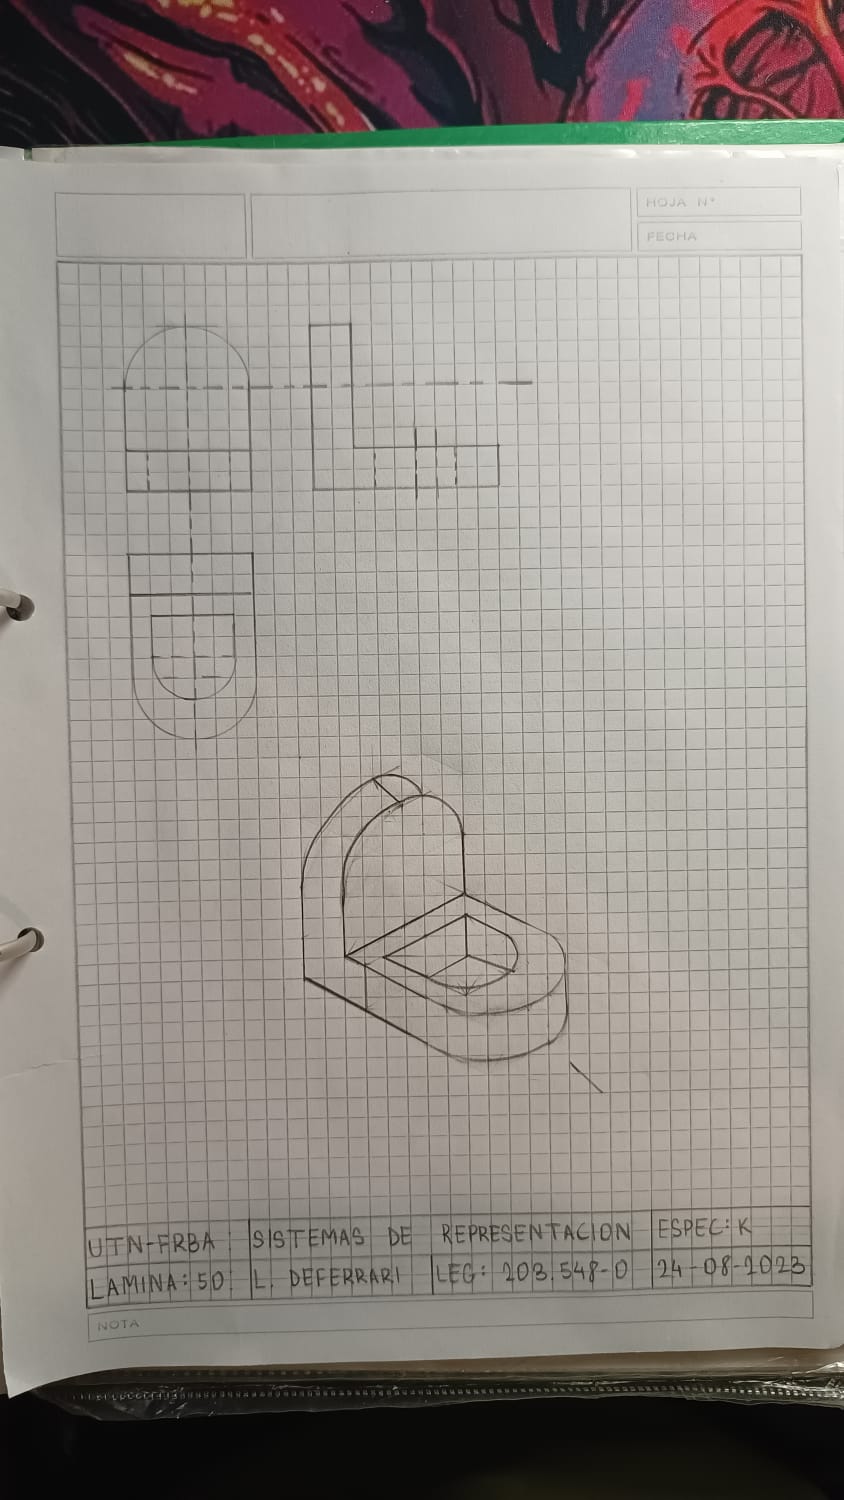 HOJA N°
FECHA
UTN-FRBA SISTEMAS DE REPRESENTACION ESPEC: K
LAMINA: 50 L. DEFERRARI LEG: 203.548-0 24-08-2023
NOTA